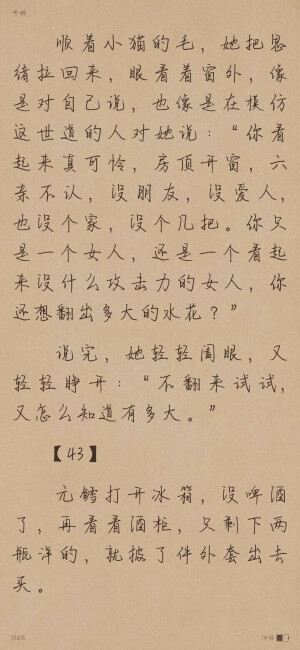 顺着小猫的毛，她把思
绪拉回来，眼看着窗外，像
是对自己说，也像是在模仿
这世道的人对她说：“你看
起来真可怜，房顶开窗，六
亲不认，没朋友，没爱人，
也没个家，没个几把。你只
是一个女人，还是一个看起
来没什么攻击力的女人，你
还想翻出多大的水花？”
说完，她轻轻阖眼，又
轻轻睁开：“不翻来试试，
又怎么知道有多大。”
【43】
元鳕打开冰箱，没啤酒
了，再看看酒柜，只剩下两
瓶洋的，就披了件外套出去
买。